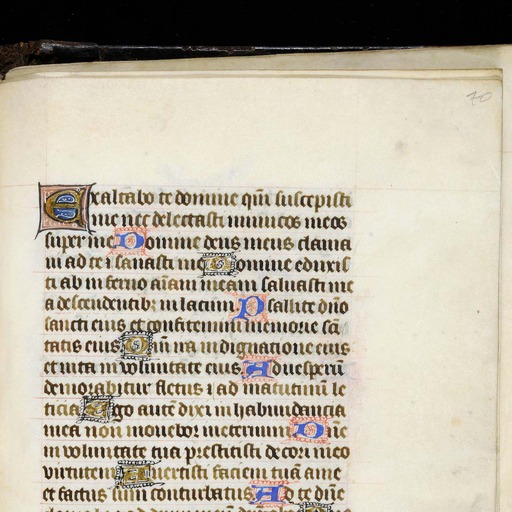 70
Exaltabo te domine qm̄ suscepisti
me nec delectasti inimicos meos
super me Domine deus meus clama
ui ad te ⁊ sanasti me Domine eduxis
ti ab inferno aīam meam saluasti me
a descendentibꝫ in lacum Psallite dn̄o
sancti eius et confitemini memorie sc̄i
tatis eius Qm̄ ira in dignatione eius
et uita in voluntate eius Ad uesperū
demorabitur fletus ⁊ ad matutinū le
ticia Ego autē dixi in habundancia
mea non mouebor in eternum Dn̄e
in voluntate tua prestitisti decori meo
virtutem Auertisti faciem tuā a me
et factus sum conturbatus Ad te dn̄e